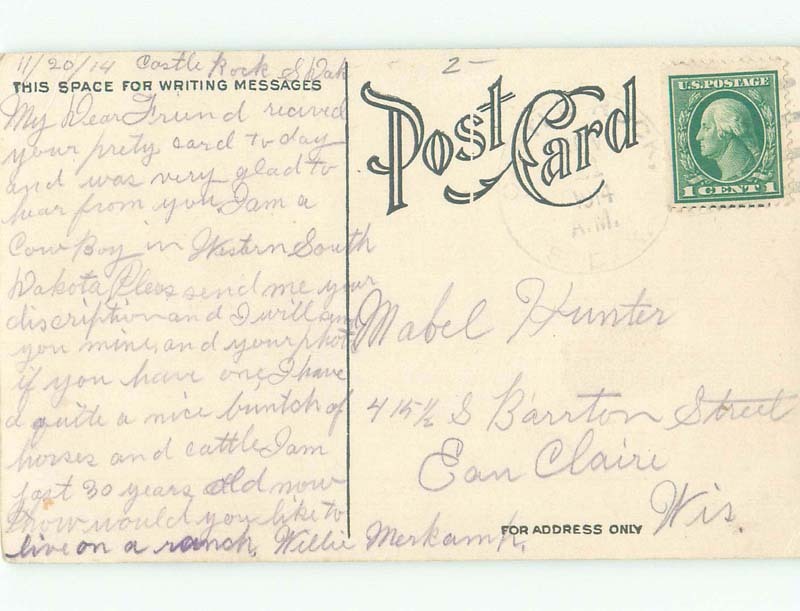 11/20/14 Castle Rock S Dak
2-
THIS SPACE FOR WRITING MESSAGES
My Dear Friend recived
your prety card to day
and was very glad to
hear from you. I am a
Cow Boy in Western South
Dakota Pleas send me your
discription and I will send
you mine, and your photo
if you have one, I have
quite a nice buntch of
horses and cattle, I am
just 30 years old now
how would you like to
live on a ranch, Willie Merkamp.
Post Card
U.S. POSTAGE
1 CENT 1
1914
A.M.
Mabel Hunter
415½ S Barrton Street
Eau Claire
Wis.
FOR ADDRESS ONLY